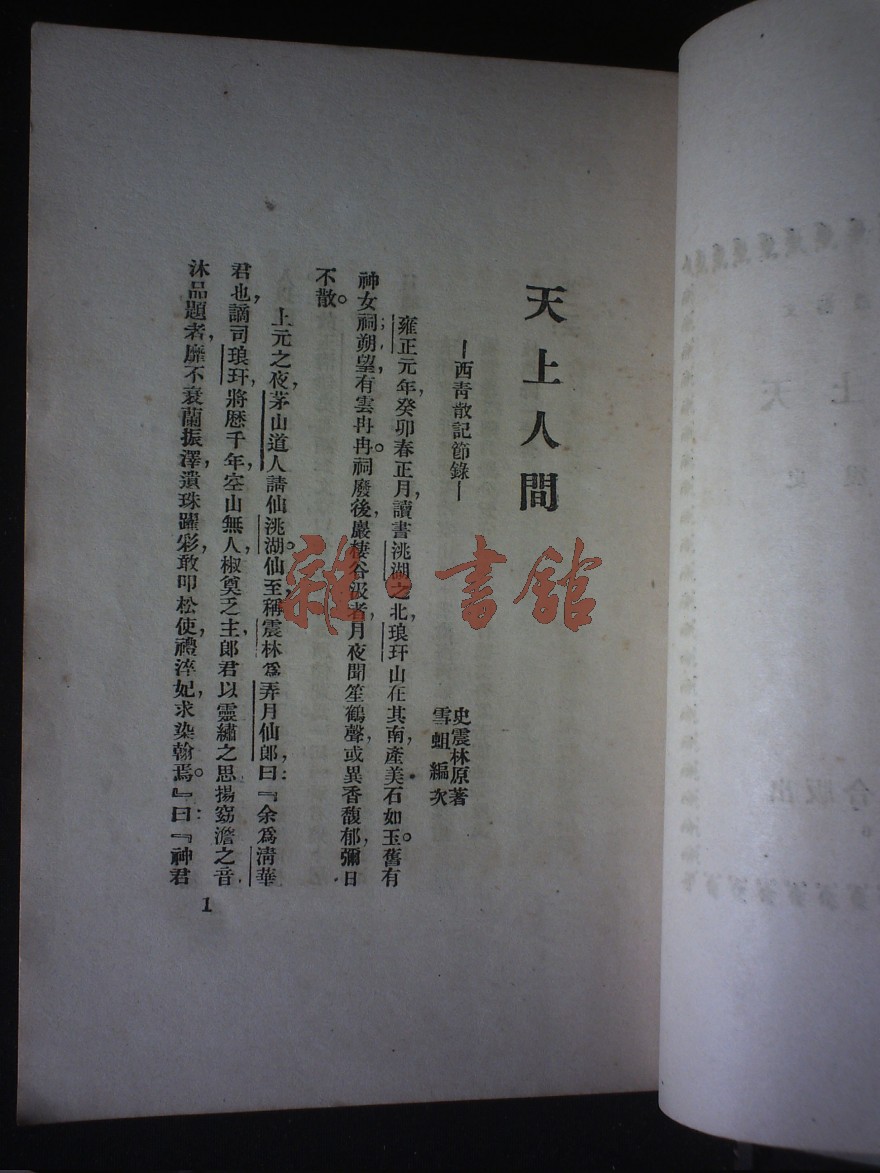 天上人間
—西青散記節錄—
史震林原著
雪蛆編次
雍正元年，癸卯春正月，讀書洮湖之北，琅玕山在其南，產美石如玉。舊有
神女祠；朔望，有雲冉冉。祠廢後，巖棲谷汲者，月夜聞笙鶴聲，或異香馥郁，彌日
不散。
上元之夜，茅山道人請仙洮湖。仙至，稱震林爲弄月仙郎，曰：『余爲淸華
君也，謫司琅玕，將歷千年，空山無人，椒奠乏主，郎君以靈繡之思，揚窈澹之音，
沐品題者，靡不衰蘭振澤，遺珠躍彩，敢叩松使，禮淬妃，求染翰焉。』曰：『神君
1
雜·書館